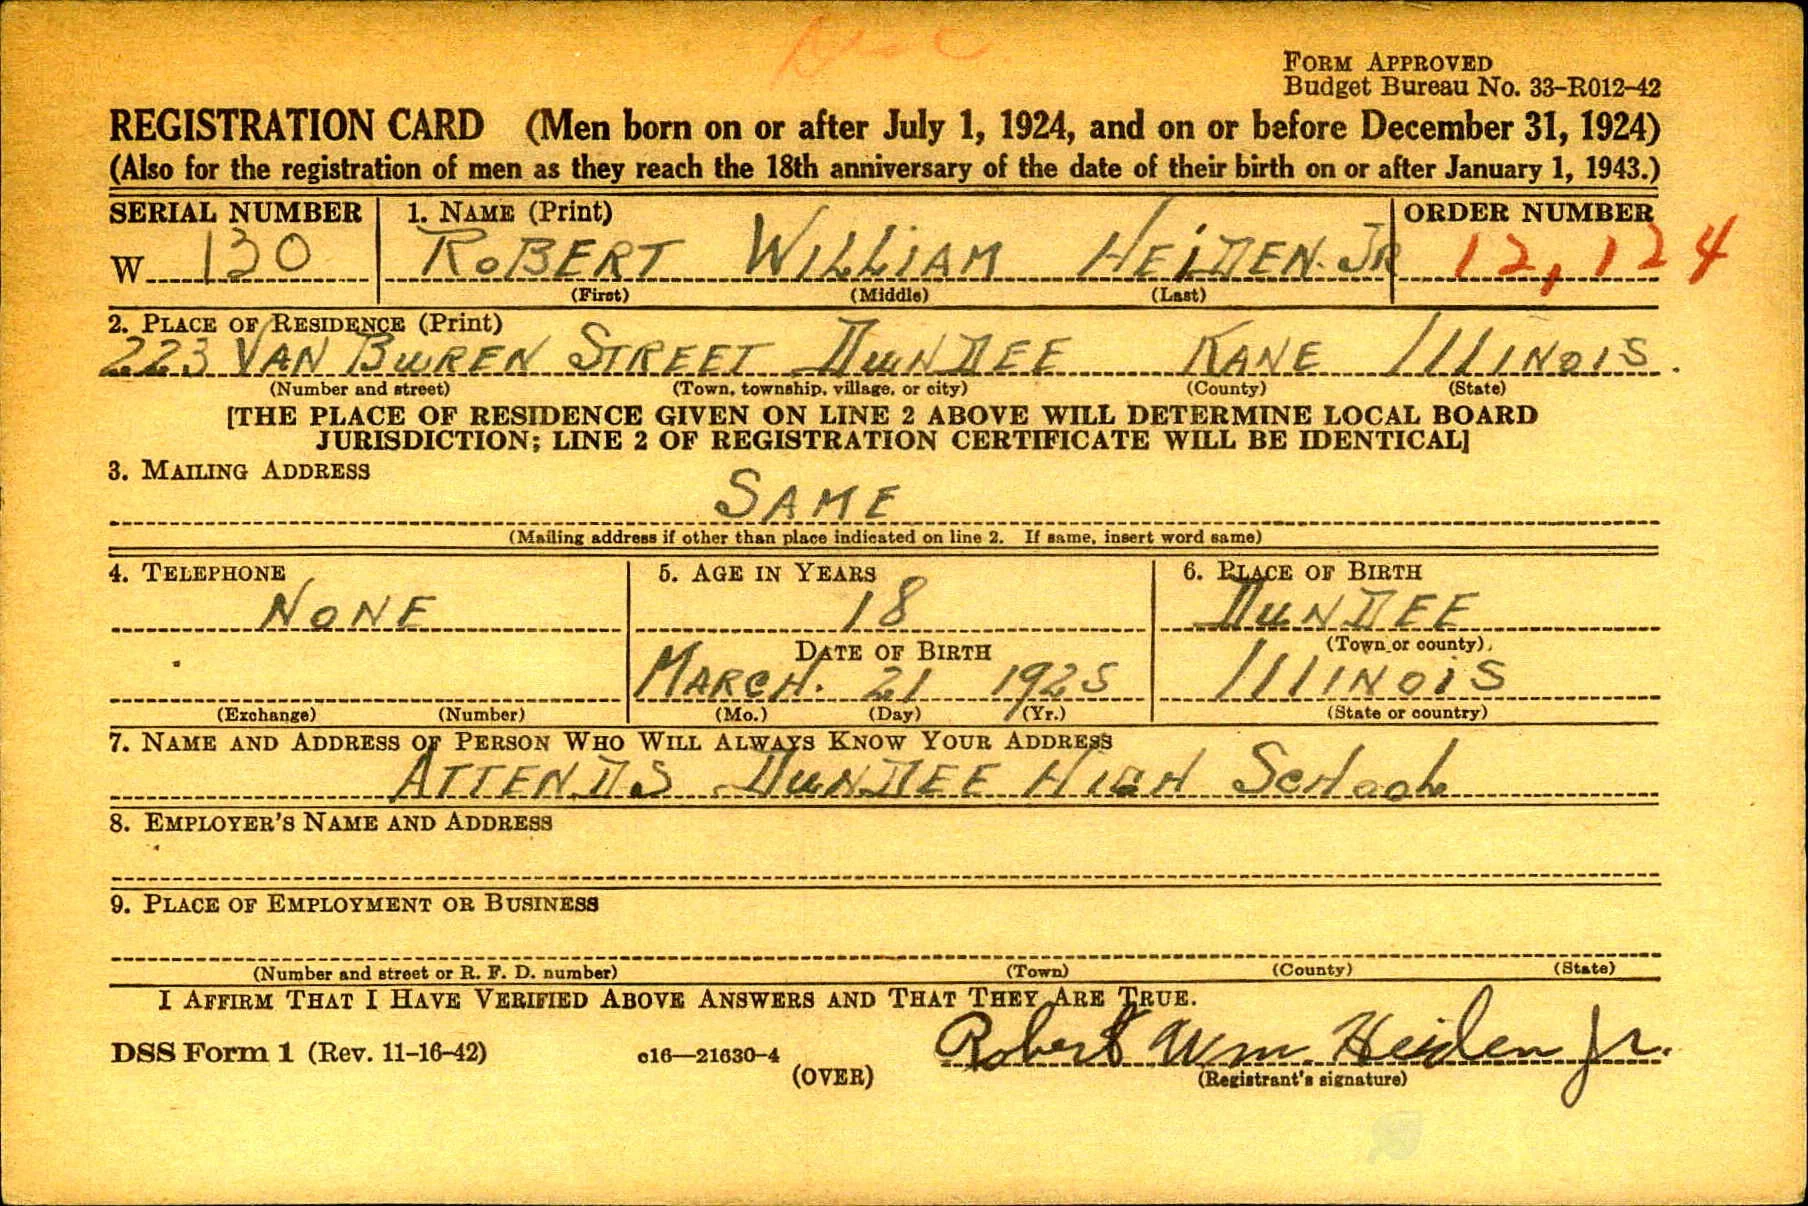 FORM APPROVED
Budget Bureau No. 33-R012-42
REGISTRATION CARD (Men born on or after July 1, 1924, and on or before December 31, 1924)
(Also for the registration of men as they reach the 18th anniversary of the date of their birth on or after January 1, 1943.)
SERIAL NUMBER 1. NAME (Print) ORDER NUMBER
W 130 ROBERT WILLIAM HEIDEN. JR 12,124
(First) (Middle) (Last)
2. PLACE OF RESIDENCE (Print)
223 VAN BUREN STREET DUNDEE KANE ILLINOIS.
(Number and street) (Town, township, village, or city) (County) (State)
[THE PLACE OF RESIDENCE GIVEN ON LINE 2 ABOVE WILL DETERMINE LOCAL BOARD
JURISDICTION; LINE 2 OF REGISTRATION CERTIFICATE WILL BE IDENTICAL]
3. MAILING ADDRESS
SAME
(Mailing address if other than place indicated on line 2. If same, insert word same)
4. TELEPHONE 5. AGE IN YEARS 6. PLACE OF BIRTH
NONE 18 DUNDEE
DATE OF BIRTH (Town or county)
MARCH. 21 1925 ILLINOIS
(Exchange) (Number) (Mo.) (Day) (Yr.) (State or country)
7. NAME AND ADDRESS OF PERSON WHO WILL ALWAYS KNOW YOUR ADDRESS
ATTENDS DUNDEE HIGH SCHOOL
8. EMPLOYER'S NAME AND ADDRESS
9. PLACE OF EMPLOYMENT OR BUSINESS
(Number and street or R. F. D. number) (Town) (County) (State)
I AFFIRM THAT I HAVE VERIFIED ABOVE ANSWERS AND THAT THEY ARE TRUE.
DSS Form 1 (Rev. 11-16-42) c16—21630-4 Robert Wm. Heiden Jr.
(OVER) (Registrant's signature)